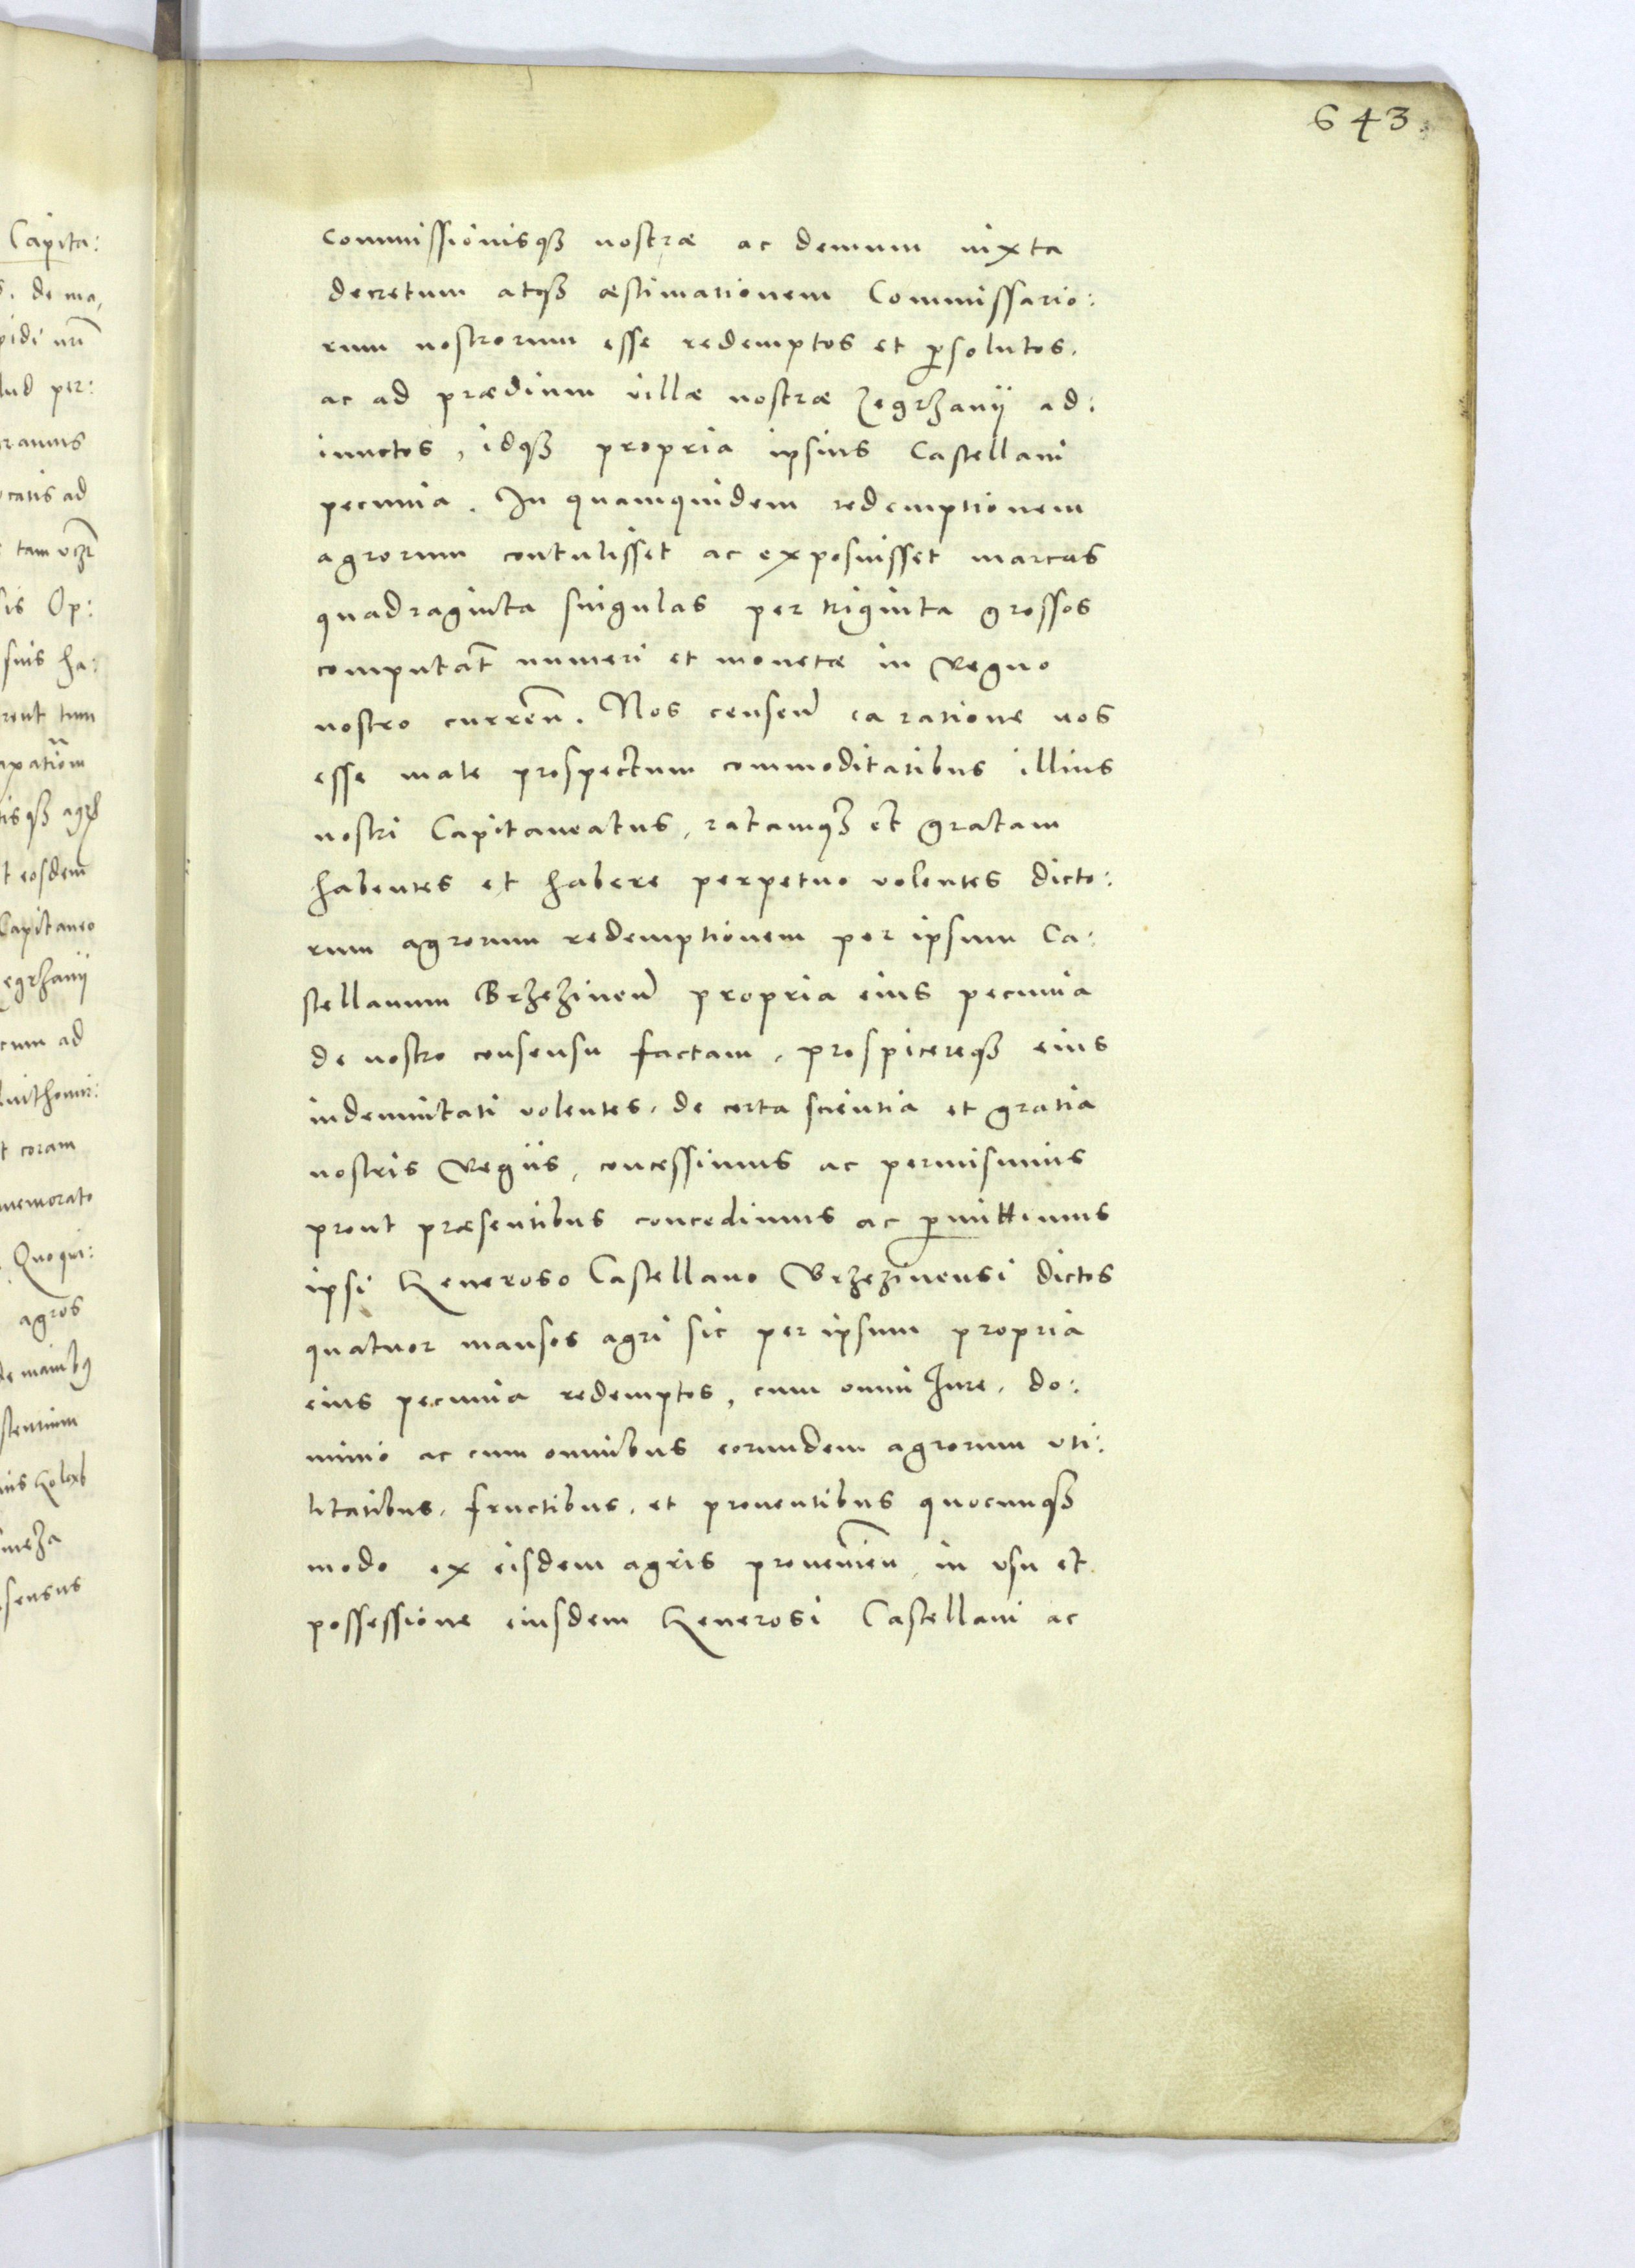 643.
commissionisqꝫ nostræ ac demum iuxta
decretum atqꝫ æstimationem Commissario:
rum nostrorum esse redemptos et ꝑsolutos.
ac ad prædium villæ nostræ Zegrzanij ad:
iunctos, idqꝫ propria ipsius Castellani
pecunia. In quamquidem redemptionem
agrorum contulisset ac exposuisset marcas
quadraginta singulas per triginta grossos
computat̃ numeri et monetæ in regno
nostro curreñ. Nos censeñ ea ratione nos
esse male prospectum commoditatibus illius
nostri Capitaneatus, ratamqꝫ et gratam
habentes et habere perpetuo volentes dicto:
rum agrorum redemptionem per ipsum Ca:
stellanum Brzezineñ propria eius pecunia
de nostro consensu factam, prospicereqꝫ eius
indemnitati volentes, de certa scientia et gratia
nostris regijs, concessimus ac permisimus
prout præsentibus concedimus ac ꝑmittimus
ipsi Generoso Castellano Brzezinensi dictos
quatuor mansos agri sic per ipsum propria
eius pecunia redemptos, cum omni Iure, do:
minio ac cum omnibus eorundem agrorum vti:
litatibus, fructibus, et prouentibus quocunqꝫ
modo ex eisdem agris prouenieñ, in vsu et
possessione eiusdem Generosi Castellani ac